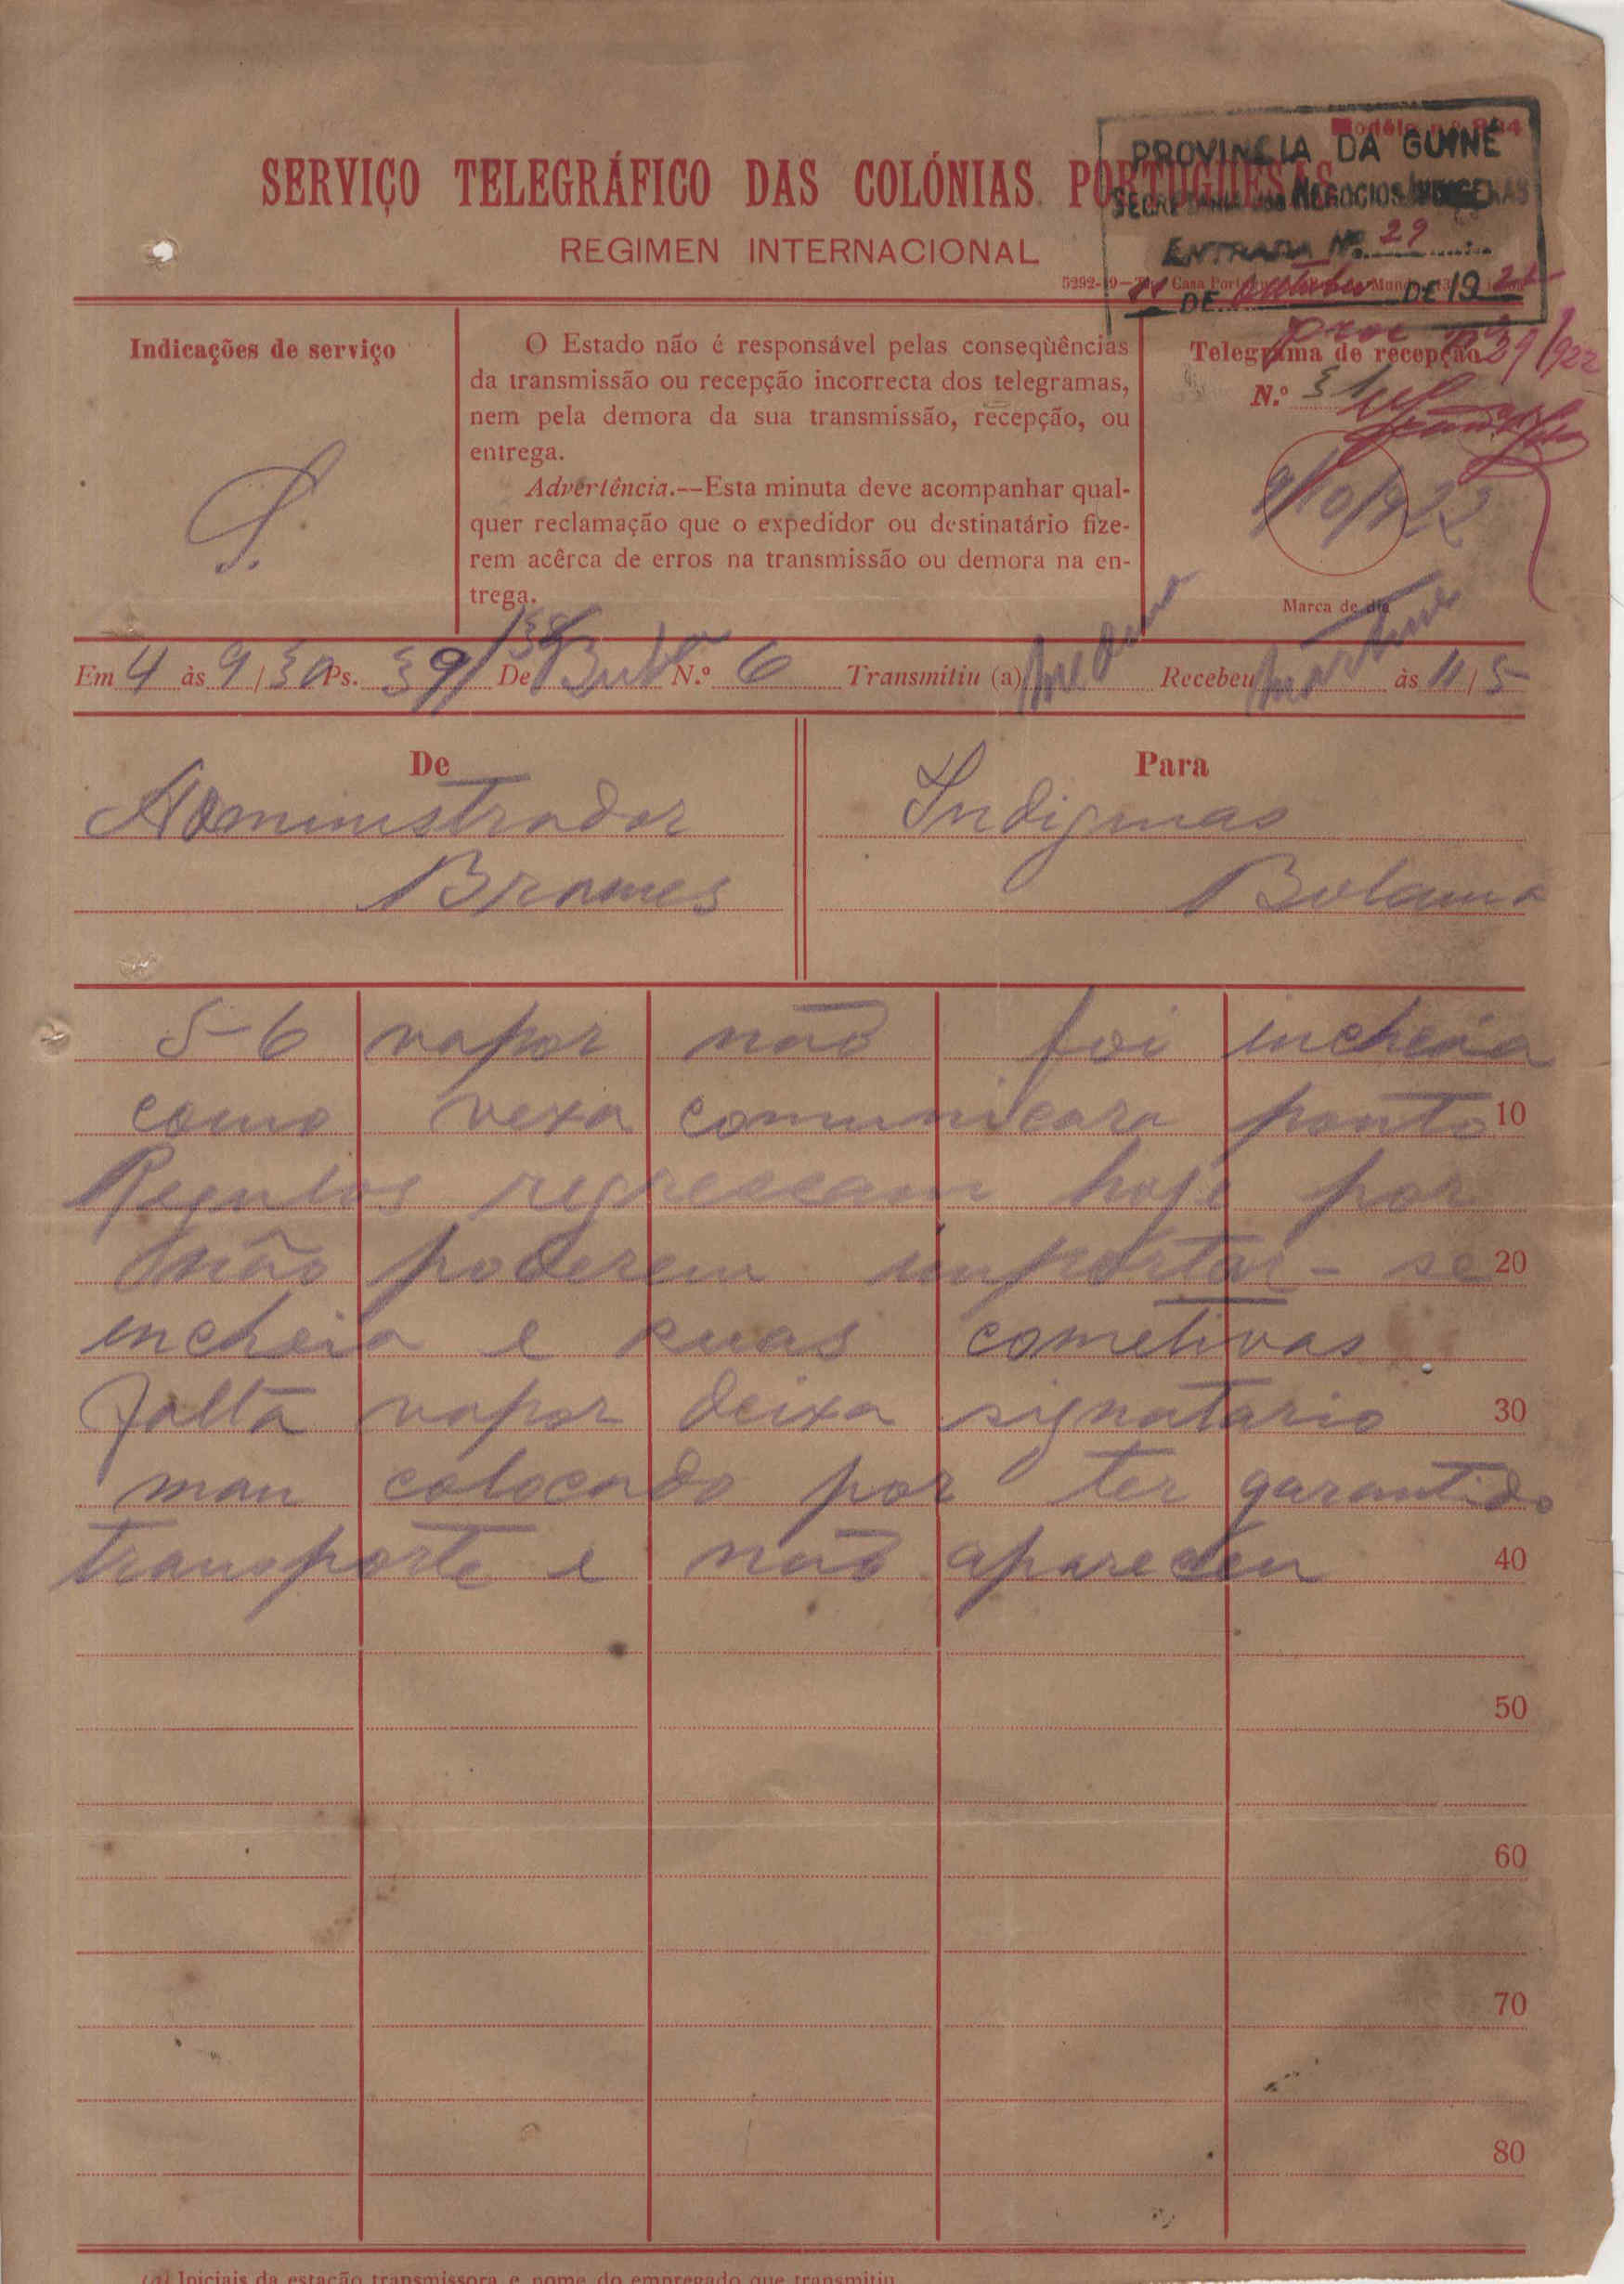 Modêlo n.º 
SERVIÇO TELEGRÁFICO DAS COLÓNIAS PORTUGUESAS
REGIMEN INTERNACIONAL
PROVINCIA DA GUINÉ
SECRETARIA DOS NEGOCIOS INDIGENAS
ENTRADA Nº. 29
11 DE outubro DE 1922
Proc nº 39/922
Indicações de serviço
O Estado não é responsável pelas conseqùências
da transmissão ou recepção incorrecta dos telegramas,
nem pela demora da sua transmissão, recepção, ou
entrega.
Advertência.--Esta minuta deve acompanhar qual-
quer reclamação que o expedidor ou destinatário fize-
rem acêrca de erros na transmissão ou demora na en-
trega.
Telegrama de recepção
N.º 31
9/10/922
Marca de dia
Em 4 às 9/30 Ps. 39/38 De N.º 6 Transmitiu (a) Recebeu Martins às 11/5
De
Administrador
Brames
Para
Indigenas
Bolama
5-6 vapor não foi incheia
como vexa comunicara ponto 10
Regulos regressam hoje por
não poderem importar-se 20
incheia e suas cometivas
falta vapor deixa signatario 30
mau colocado por ter garantido
transporte e não apareceu 40
50
60
70
80
(a) Iniciais da estação transmissora e nome do empregado que transmitiu